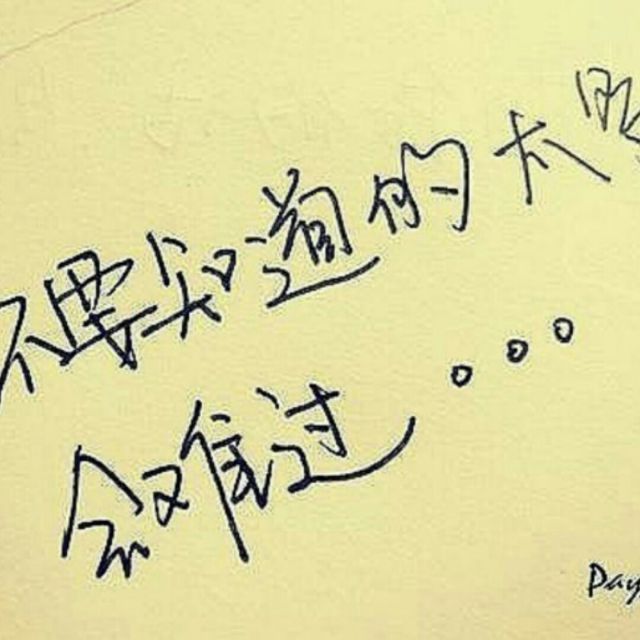 不要知道的太明
会难过。。。
Pay